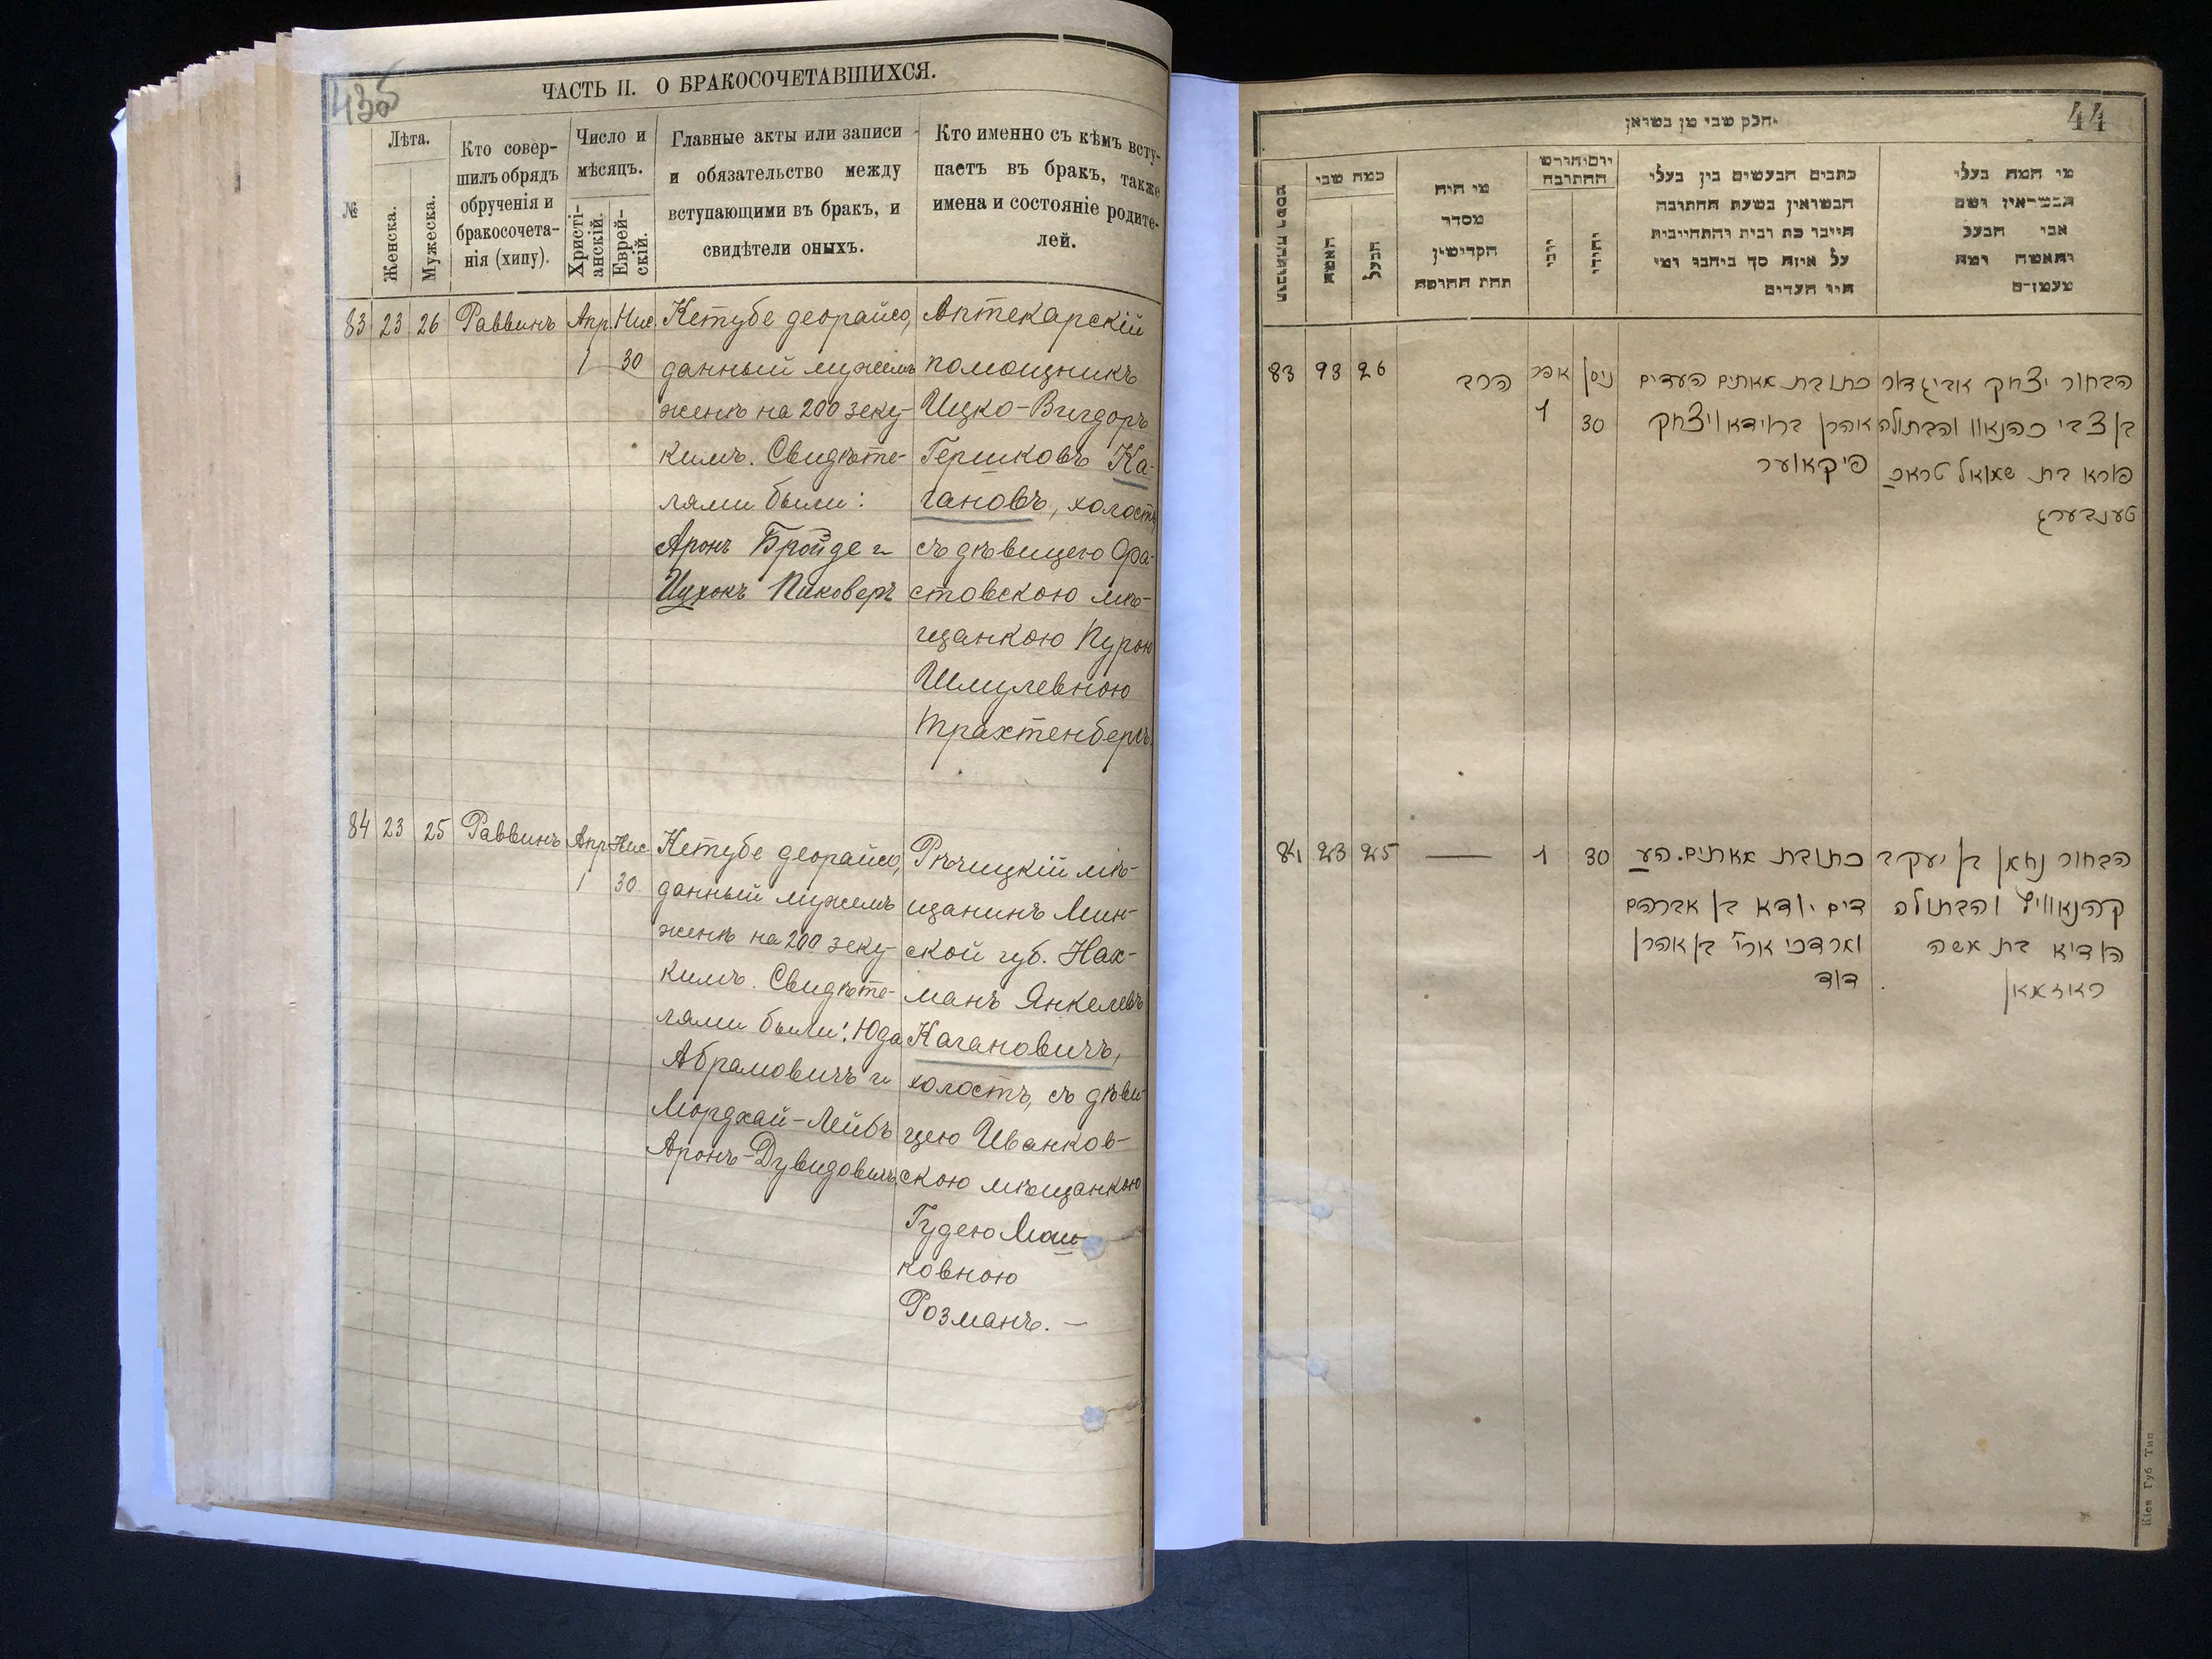 435
ЧАСТЬ II. О БРАКОСОЧЕТАВШИХСЯ.
№
Лѣта.
Женска.
Мужеска.
Кто совер-
шилъ обрядъ
обрученія и
бракосочета-
нія (хипу).
Число и
мѣсяцъ.
Христі-
анскій.
Еврей-
скій.
Главные акты или записи
и обязательство между
вступающими въ бракъ, и
свидѣтели оныхъ.
Кто именно съ кѣмъ всту-
паетъ въ бракъ, также
имена и состояніе родите-
лей.
83 23 26 Раввинъ Апр. Нис.
1 30
Кетубе деорайсо,
данный мужемъ
женѣ на 200 зеку-
кимъ. Свидѣте-
лями были:
Аронъ Бройде и
Ицхокъ Пиковеръ
Аптекарскій
помощникъ
Ицко-Вигдоръ
Гершковъ Ка-
гановъ, холостъ,
съ дѣвицею Фа-
стовскою мѣ-
щанкою Пурою
Шмулевною
Трахтенбергъ.
84 23 25 Раввинъ Апр. Нис.
1 30
Кетубе деорайсо,
данный мужемъ
женѣ на 200 зеку-
кимъ. Свидѣте-
лями были: Юда
Абрамовичъ и
Мордхай-Лейбъ
Аронъ-Дувидовичъ
Рѣчицкій мѣ-
щанинъ Мин-
ской губ. Нах-
манъ Янкелевъ
Кагановичъ,
холостъ, съ дѣви-
цею Иванков-
скою мѣщанкою
Гудею Мош-
ковною
Розманъ. —
44
חלק שני מן נשואין
כמה שני
האשה
הבעל
מי היה
מסדר
הקדושין
תחת החופה
יום וחודש
החתונה
יוני
יהודי
כתבים הנעשים בין בעלי
הנשואין בשעת החתונה
על איזה סך כיחבו ומי
היו העדים
מי המה בעלי
הנשואין ושם
אבי הבעל
והאשה ומה
מעמדם
83 93 26 הרב אפר ניסן
1 30
הבחור יצחק אביגדור
בן צבי כהנאוו והבתולה
פורא בת שמואל טראכ
טענבערג
כתובת מאתים העדים
אהרן ברוידא ויצחק
פיקאווער
84 23 25 — 1 30
הבחור נחמן בן יעקב
קהנאוויץ והבתולה
הודיא בת משה
ראזמאן
כתובת מאתים. הע
דים יודא בן אברהם
מרדכי ארי' בן אהרן
דוד
Кіев Губ Тип